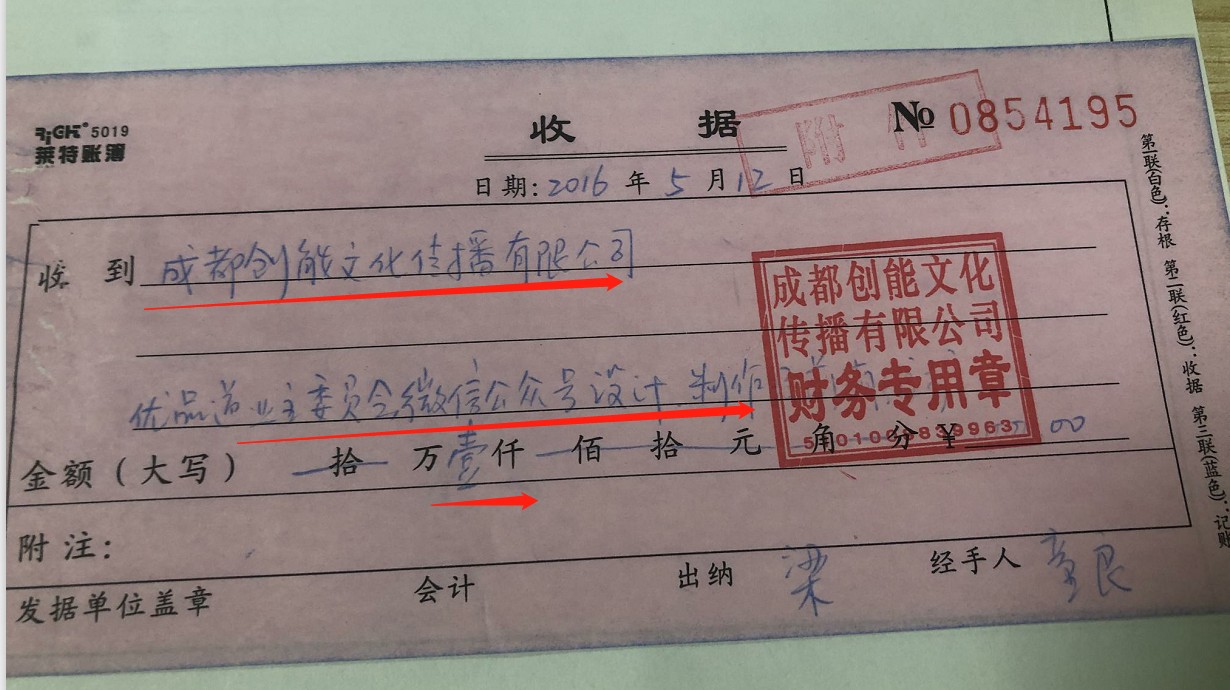 RiGHT 5019
莱特账簿
收 据
№ 0854195
附 件
日期:2016 年 5 月 12 日
收 到 成都创能文化传播有限公司
优品道业主委员会微信公众号设计、制作
金额(大写) 拾 万 壹 仟 佰 拾 元 角 分 ¥ 00
成都创能文化
传播有限公司
财务专用章
附 注:
发据单位盖章 会计 出纳 梁 经手人 童良
第一联(白色):存根 第二联(红色):收据 第三联(蓝色):记账